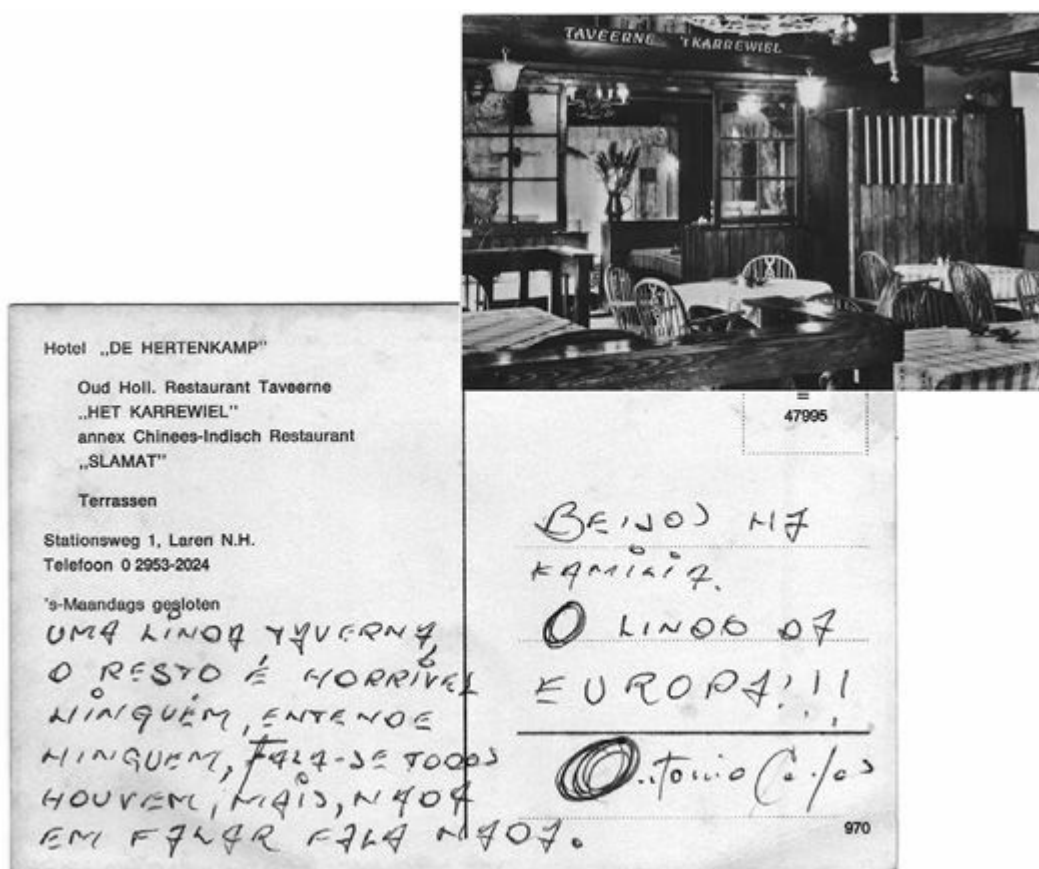 TAVEERNE 'T KARREWIEL
Hotel „DE HERTENKAMP"
Oud Holl. Restaurant Taveerne
„HET KARREWIEL"
annex Chinees-Indisch Restaurant
„SLAMAT"
Terrassen
Stationsweg 1, Laren N.H.
Telefoon 0 2953-2024
's-Maandags gesloten
UMA LINDA TAVERNA,
O RESTO É HORRÍVEL
NINGUÉM, ENTENDE
NINGUEM, FALA-SE TODOS
HOUVEM, MAIS, NADA
EM FALAR FALA NADA.
47995
BEIJOS NA
FAMILIA.
O LINDO DA
EUROPA!!!
Antonio Carlos
970